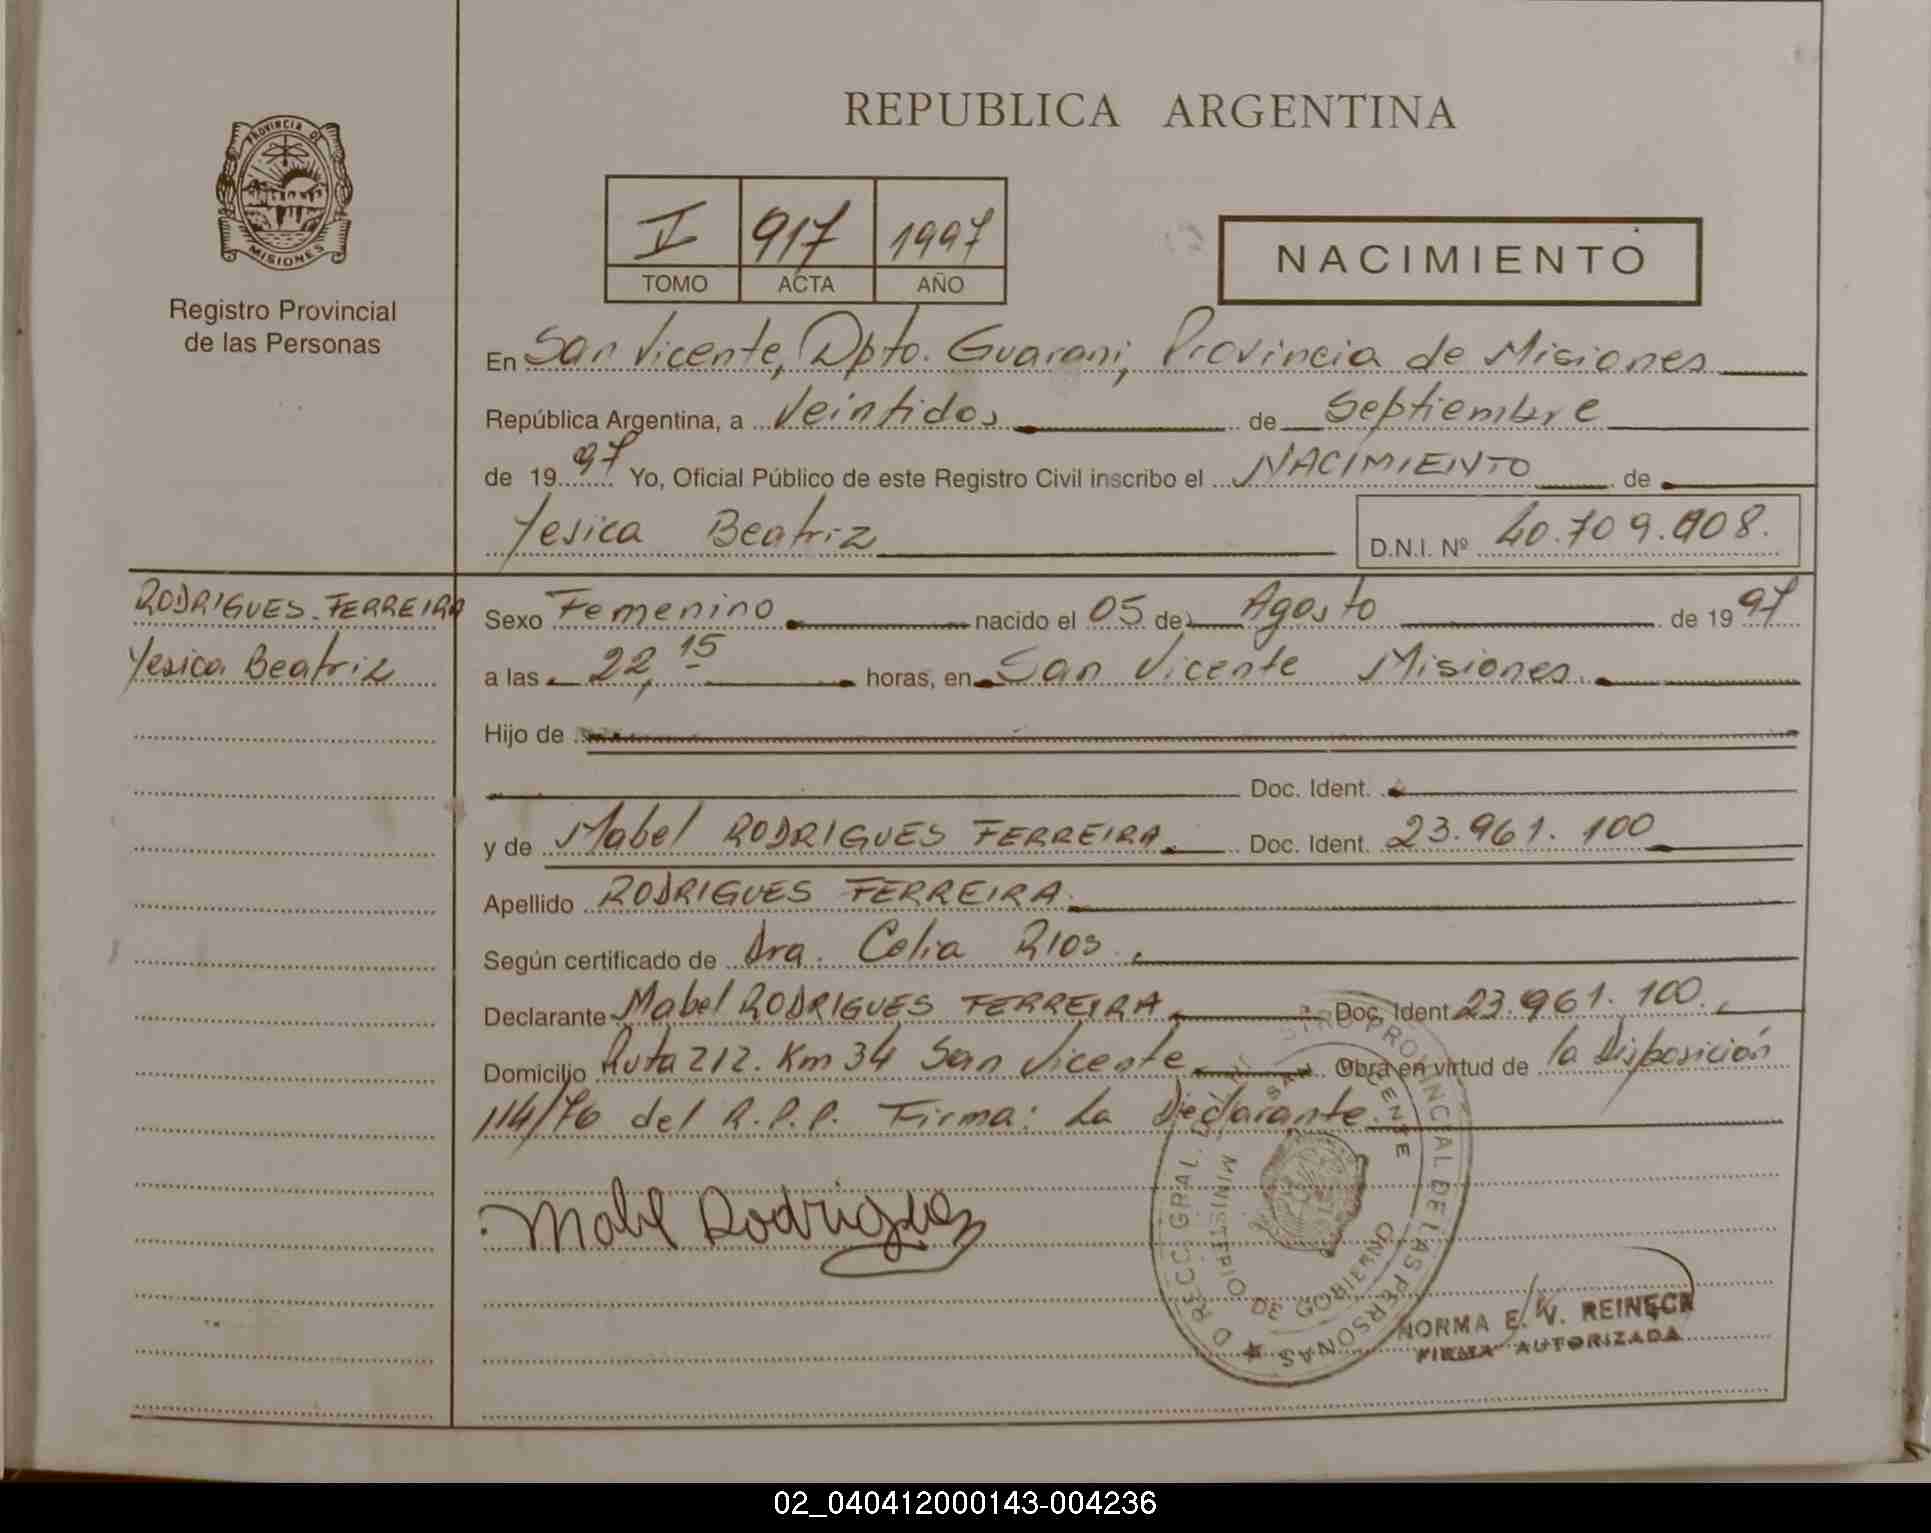 REPUBLICA ARGENTINA
PROVINCIA DE
MISIONES
Registro Provincial
de las Personas
V 917 1997
TOMO ACTA AÑO
NACIMIENTO
En San Vicente, Dpto. Guarani, Provincia de Misiones
República Argentina, a Veintidos de Septiembre
de 1997 Yo, Oficial Público de este Registro Civil inscribo el NACIMIENTO de
Yesica Beatriz D.N.I. Nº 40.709.908.
RODRIGUES FERREIRA
Yesica Beatriz
Sexo Femenino nacido el 05 de Agosto de 1997
a las 22,15 horas, en San Vicente Misiones.
Hijo de
Doc. Ident.
y de Mabel RODRIGUES FERREIRA. Doc. Ident. 23.961.100
Apellido RODRIGUES FERREIRA.
Según certificado de Dra. Celia RIOS.
Declarante Mabel RODRIGUES FERREIRA Doc. Ident 23.961.100.
Domicilio Ruta 212. Km 34 San Vicente Obra en virtud de la Disposición
114/76 del R.P.P. Firma: La Declarante.
Mabel Rodrigues
DIRECC. GRAL. REGISTRO PROVINCIAL DE LAS PERSONAS
SAN VICENTE
MINISTERIO DE GOBIERNO
NORMA E. V. REINECK
FIRMA AUTORIZADA
02_040412000143-004236